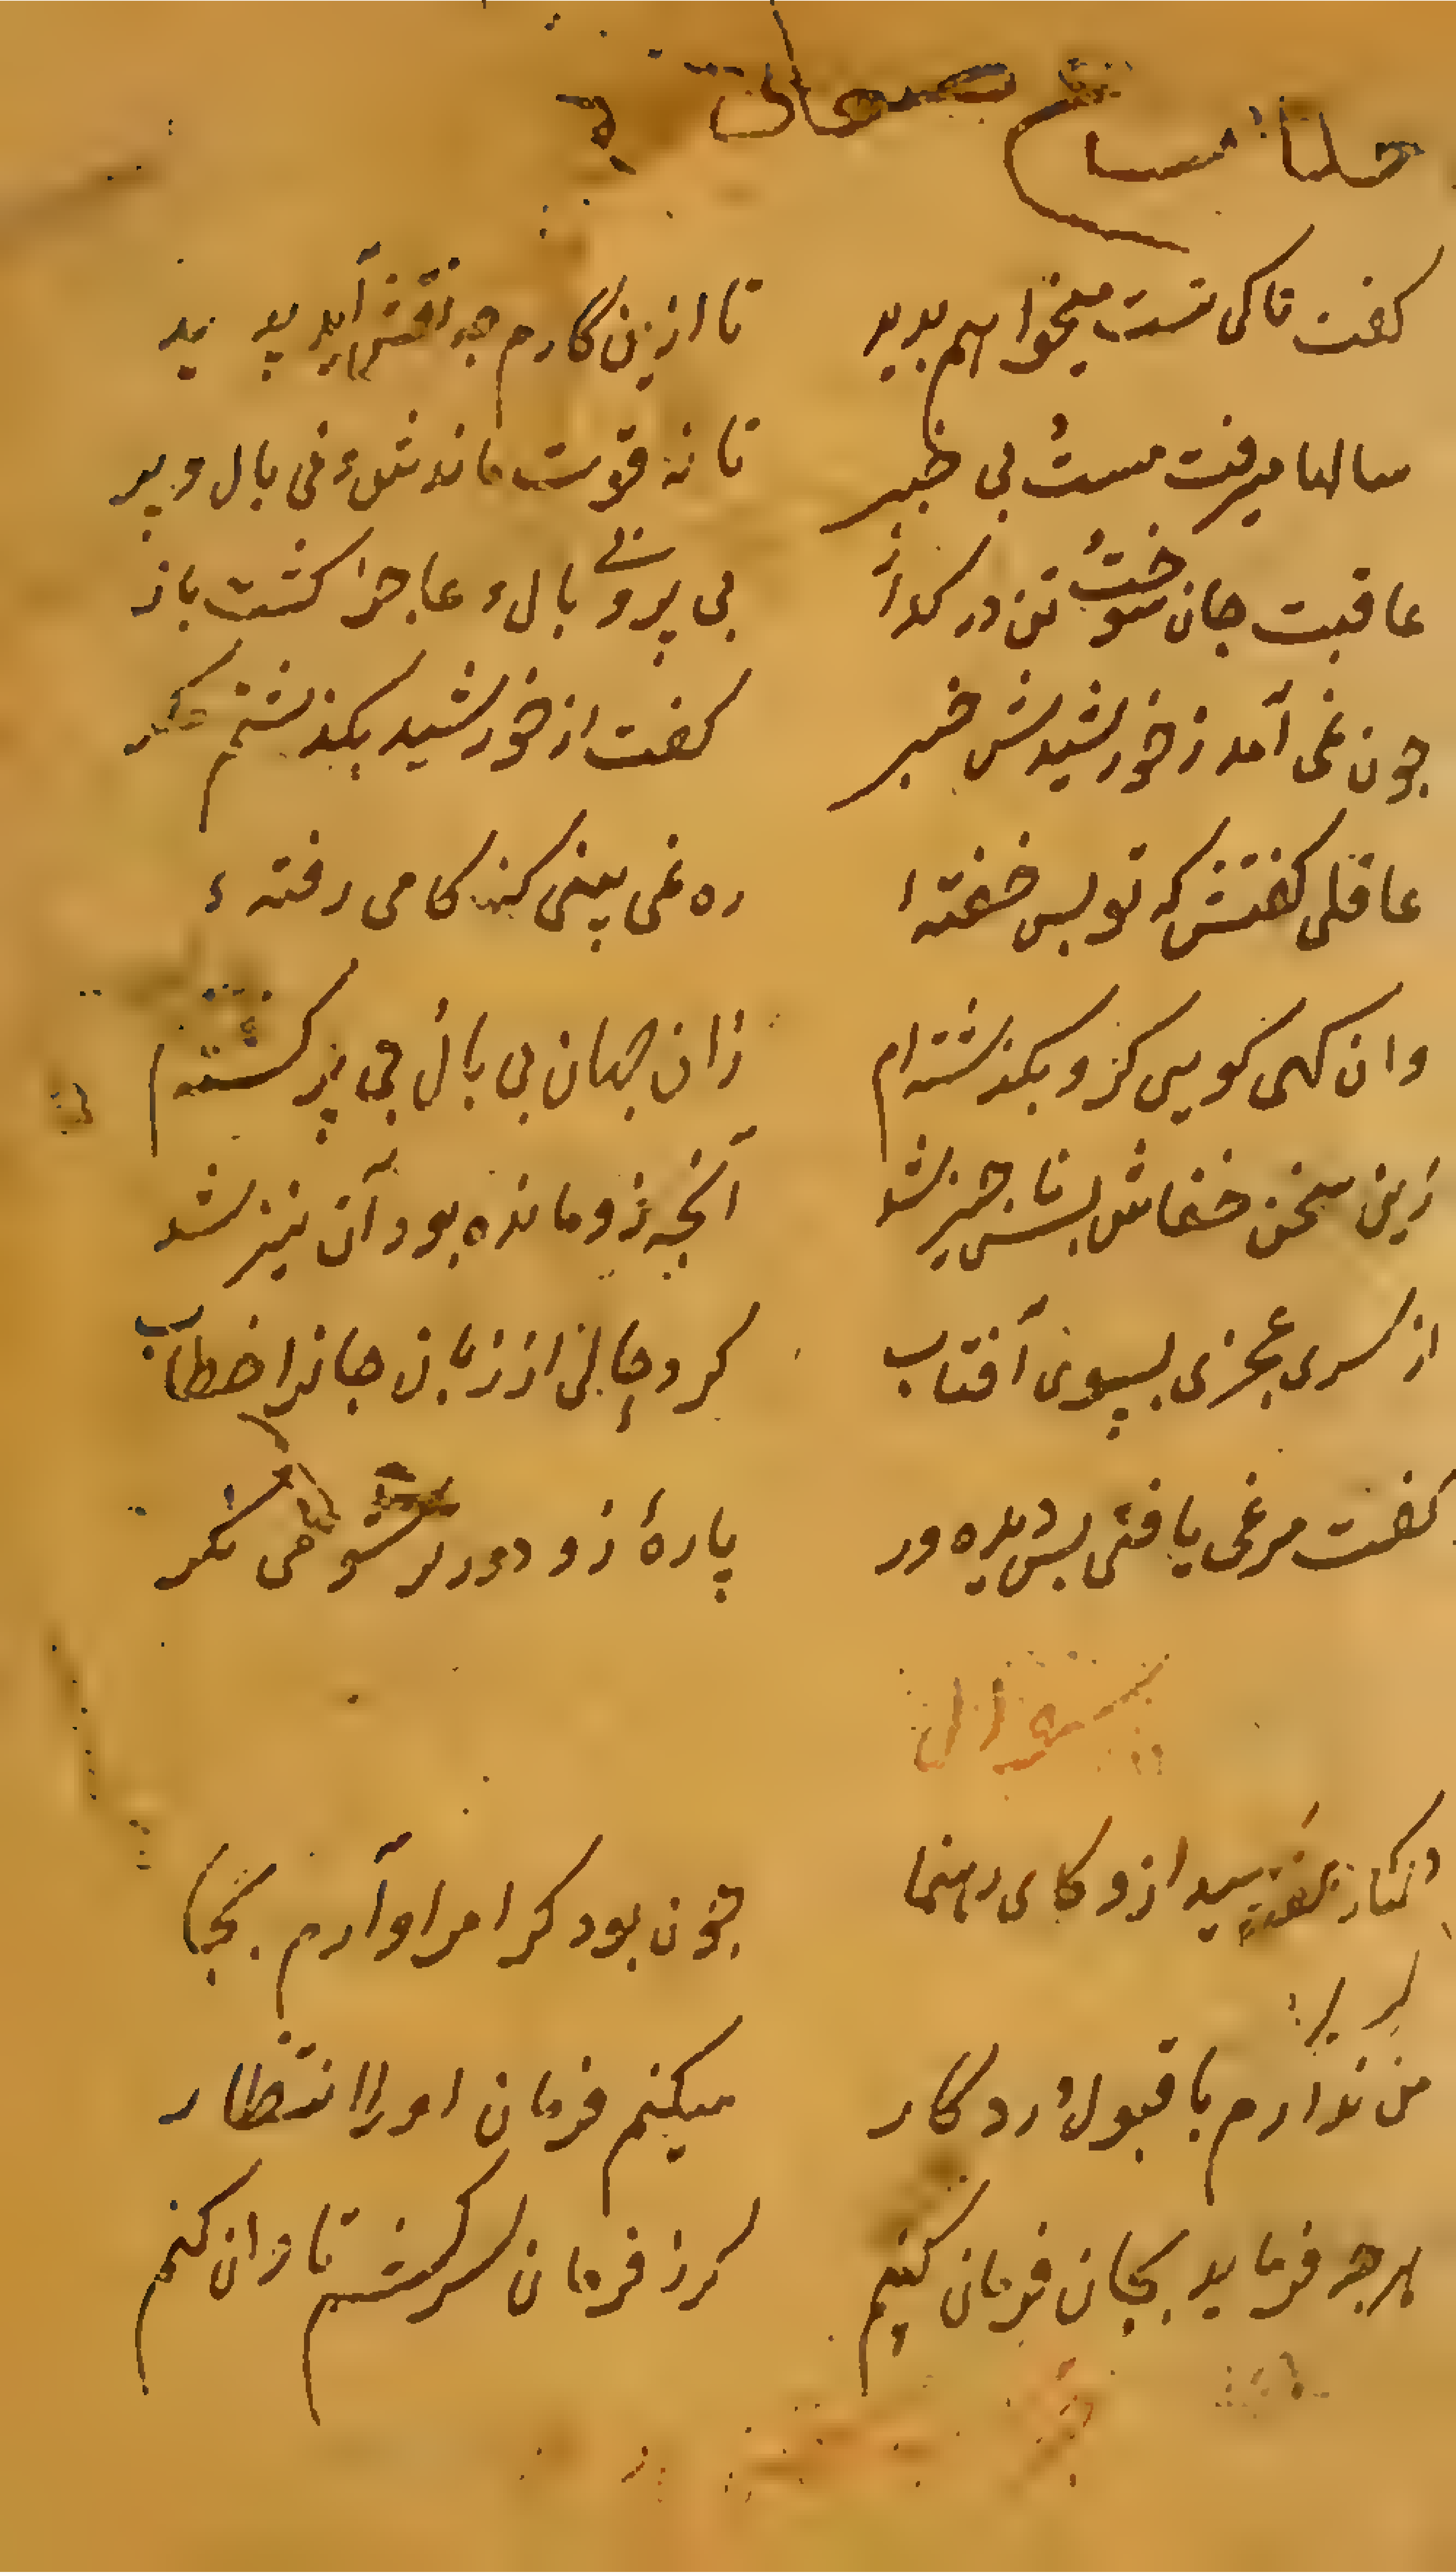 کفت تا کی تست میخواهم بدید تا ازین کارم چه نقش آید پدید
سالها میرفت مست بی خبر تا نه قوت ماندش و نی بال و پر
عاقبت جان سوخت تن در کداز بی پر و بی بال و عاجز کشت باز
جون نمی آمد ز خورشیدش خبر کفت از خورشید بکذشتم مکر
عاقلی کفتش که تو بس خفتهٔ ره نمی بینی کنه کامی رفتهٔ
وانکهی کویی کزو بکذشته ام زان جهان بی بال بی پر کشته ام
زین سخن خفاش بس ناچیز شد آنچه زو مانده بود آن نیز شد
از سری عجزی بسوی آفتاب کرد حالی از زبان جانرا خطاب
کفت مرغی یافتی بس دیده ور پارهٔ زو دورتر شو می نکر
سوال
سید ازو کای رهنما چون بود کر امر او آرم بجا
من ندارم با قبول و رد کار میکنم فرمان او را انتظار
هرچه فرماید بجان فرمان کنم کر ز فرمان سر کشم تاوان کنم